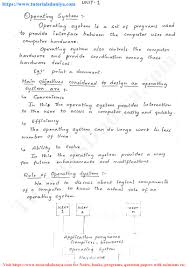 https://www.tutorialsduniya.com
UNIT-1
Operating System :-
Operating system is a set of programs used
to provide interface between the computer user and
computer hardware.
Operating system also controls the computer
hardware and provide coordination among these
hardware devices
Eg:- print a document.
Main objectives considered to design an operating
system are :-
Convenience
In this the operating system provides a interface
to the user to access a computer easily and quickly
Efficiency
The operating system can do various work in less
number of time.
Ability to evolve
In this the operating system provides a way
for future enhancements and developments.
Role of Operating System :-
We need to discuss about logical components
of a computer to know the actual role of an
operating system.
User 1
User 2
User
Application programs
(Compilers, browsers)
Operating System
Hardware